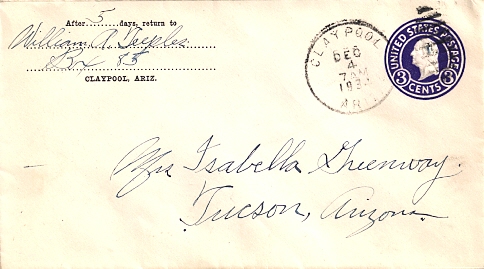 After 5 days, return to
William A. Peeples
Bx 85
CLAYPOOL, ARIZ.
CLAYPOOL
DEC
4
7 AM
ARIZ
UNITED STATES POSTAGE
3 CENTS 3
Mrs Isabella Greenway.
Tucson, Arizona